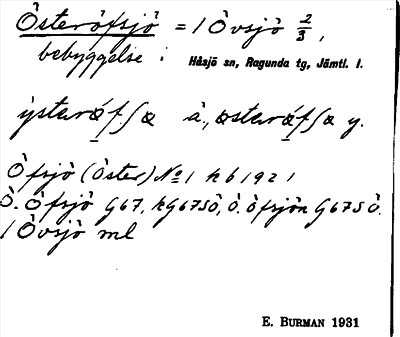 Österöfsjö = 1 Övsjö 2/3,
bebyggelse i Håsjö sn, Ragunda tg, Jämtl. l.
ỳstaræ̀fʃæ ä., æstaræ̀fʃæ y.
Öfsjö (Öster) No 1 hb 1921
Ö. Öfsjö G67, hG67SÖ, Ö. Öfsjön G67SÖ.
1 Övsjö ml
E. BURMAN 1931